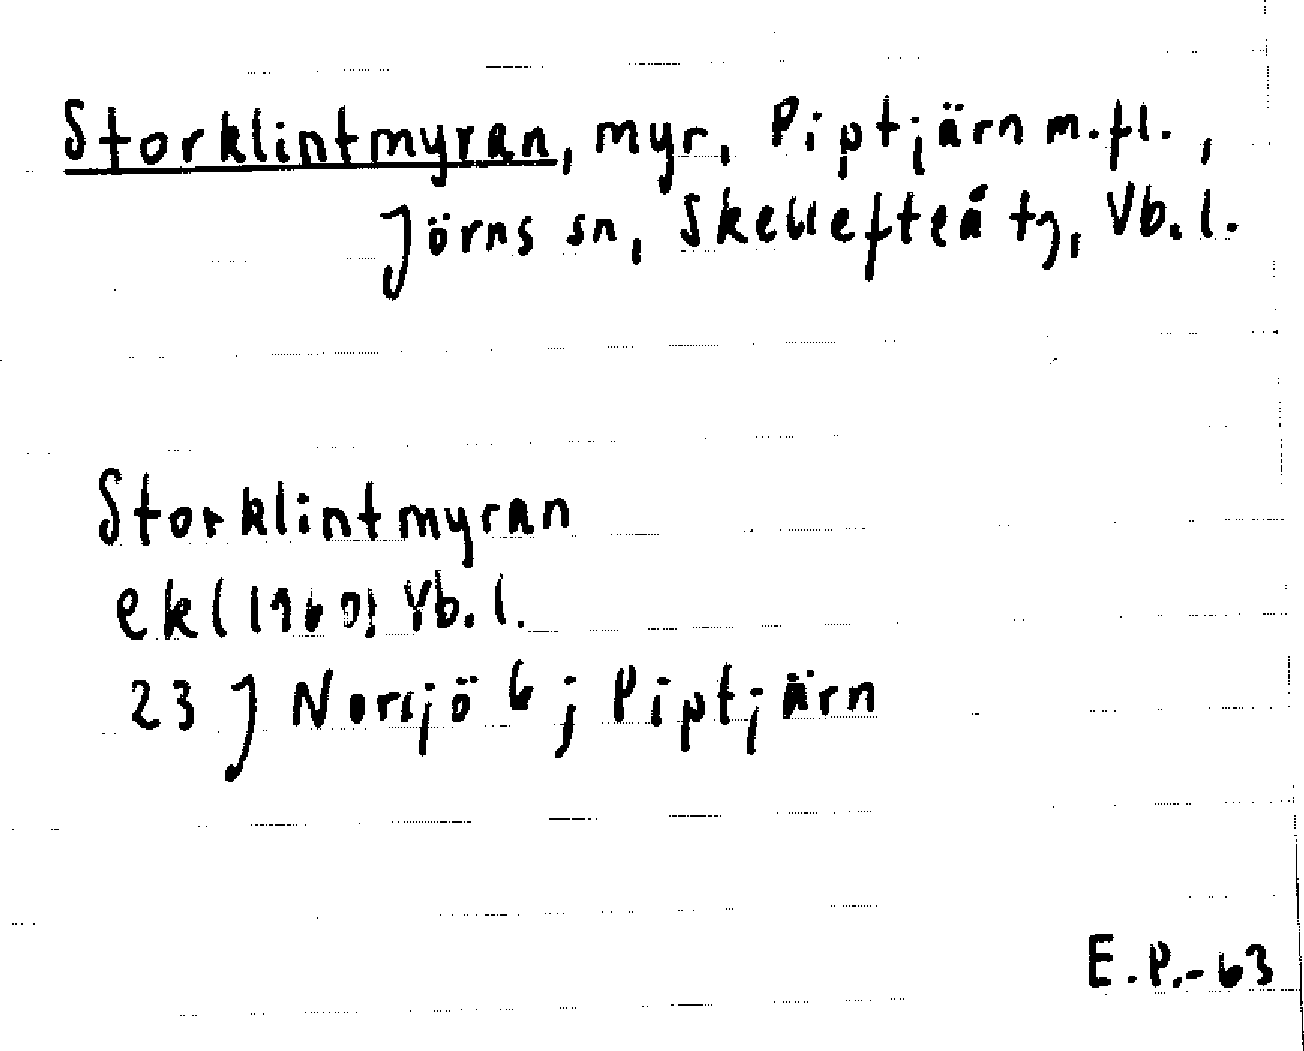 Storklintmyran, myr, Piptjärn m.fl.,
Jörns sn, Skellefteå tg, Vb.l.
Storklintmyran
ekl(1960) Vb.l.
23 J Norsjö 6 j Piptjärn
E.P.-63